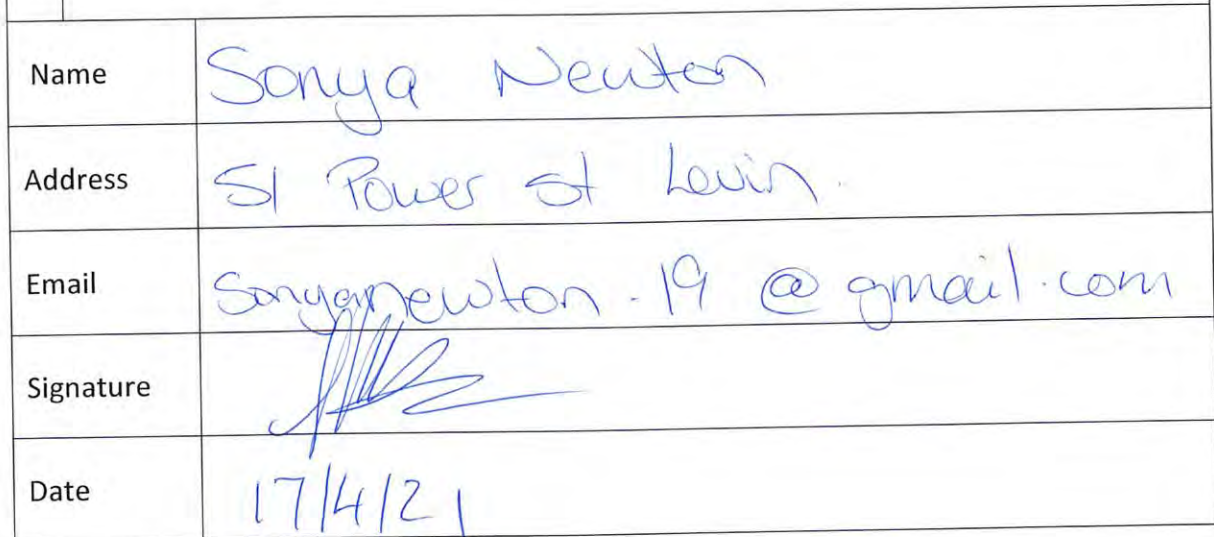 Name Sonya Newton
Address 51 Power st Levin.
Email Sonyanewton.19@gmail.com
Signature
Date 17/4/21